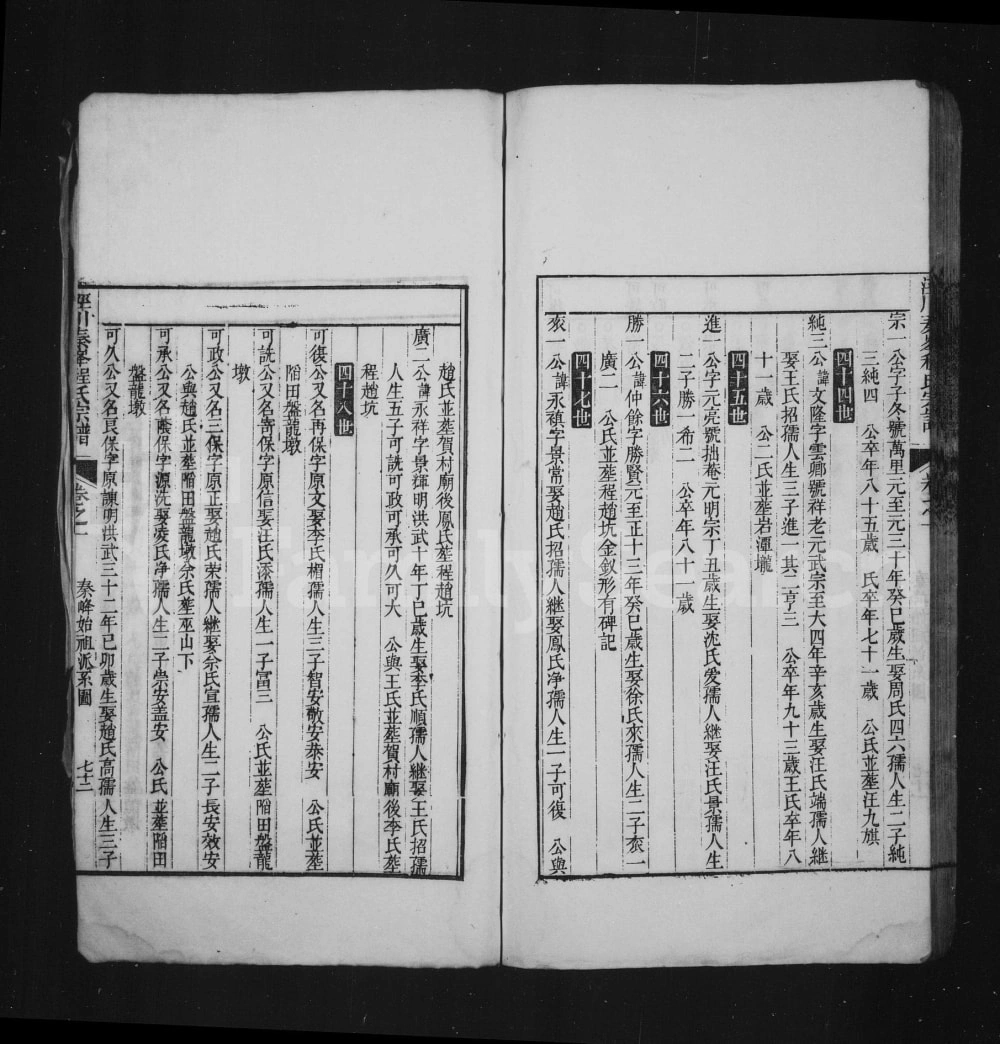 宗一公字子冬號萬里元至元三十年癸巳歲生娶周氏四六孺人生二子純
三純四 公卒年八十五歲 氏卒年七十一歲 公氏並塟汪九旗
四十四世
純三公諱文隆字雲卿號祥老元武宗至大四年辛亥歲生娶汪氏端孺人継
娶王氏招孺人生三子進一其二亨三 公卒年九十三歲王氏卒年八
十一歲 公二氏並塟岩潭壠
四十五世
進一公字元亮號拙菴元明宗丁丑歲生娶沈氏愛孺人継娶汪氏景孺人生
二子勝一希二 公卒年八十一歲
四十六世
勝一公諱仲餘字勝賢元至正十三年癸巳歲生娶徐氏來孺人生二子亥一
廣二 公氏並塟程趙坑金釵形有碑記
四十七世
亥一公諱永禎字景常娶趙氏招孺人継娶鳳氏净孺人生一子可復 公與
趙氏並塟賀村廟後鳳氏塟程趙坑
廣二公諱永祥字景輝明洪武十年丁巳歲生娶李氏順孺人継娶王氏招孺
人生五子可詵可政可承可久可大 公與王氏並塟賀村廟後李氏塟
程趙坑
四十八世
可復公又名再保字原文娶李氏楣孺人生三子智安敬安恭安 公氏並塟
陷田盤龍墩
可詵公又名寄保字原信娶汪氏添孺人生一子富三 公氏並塟陷田盤龍
墩
可政公又名三保字原正娶趙氏荣孺人継娶佘氏宣孺人生二子長安效安
公與趙氏並塟陷田盤龍墩佘氏塟巫山下
可承公又名蔭保字源洗娶凌氏净孺人生二子崇安盖安 公氏並塟陷田
盤龍墩
可久公又名艮保字原諫明洪武三十二年己卯歲生娶趙氏高孺人生三子
涇川秦峯程氏宗譜 卷之一 秦峰始祖派系圖 七十三
FamilySearch